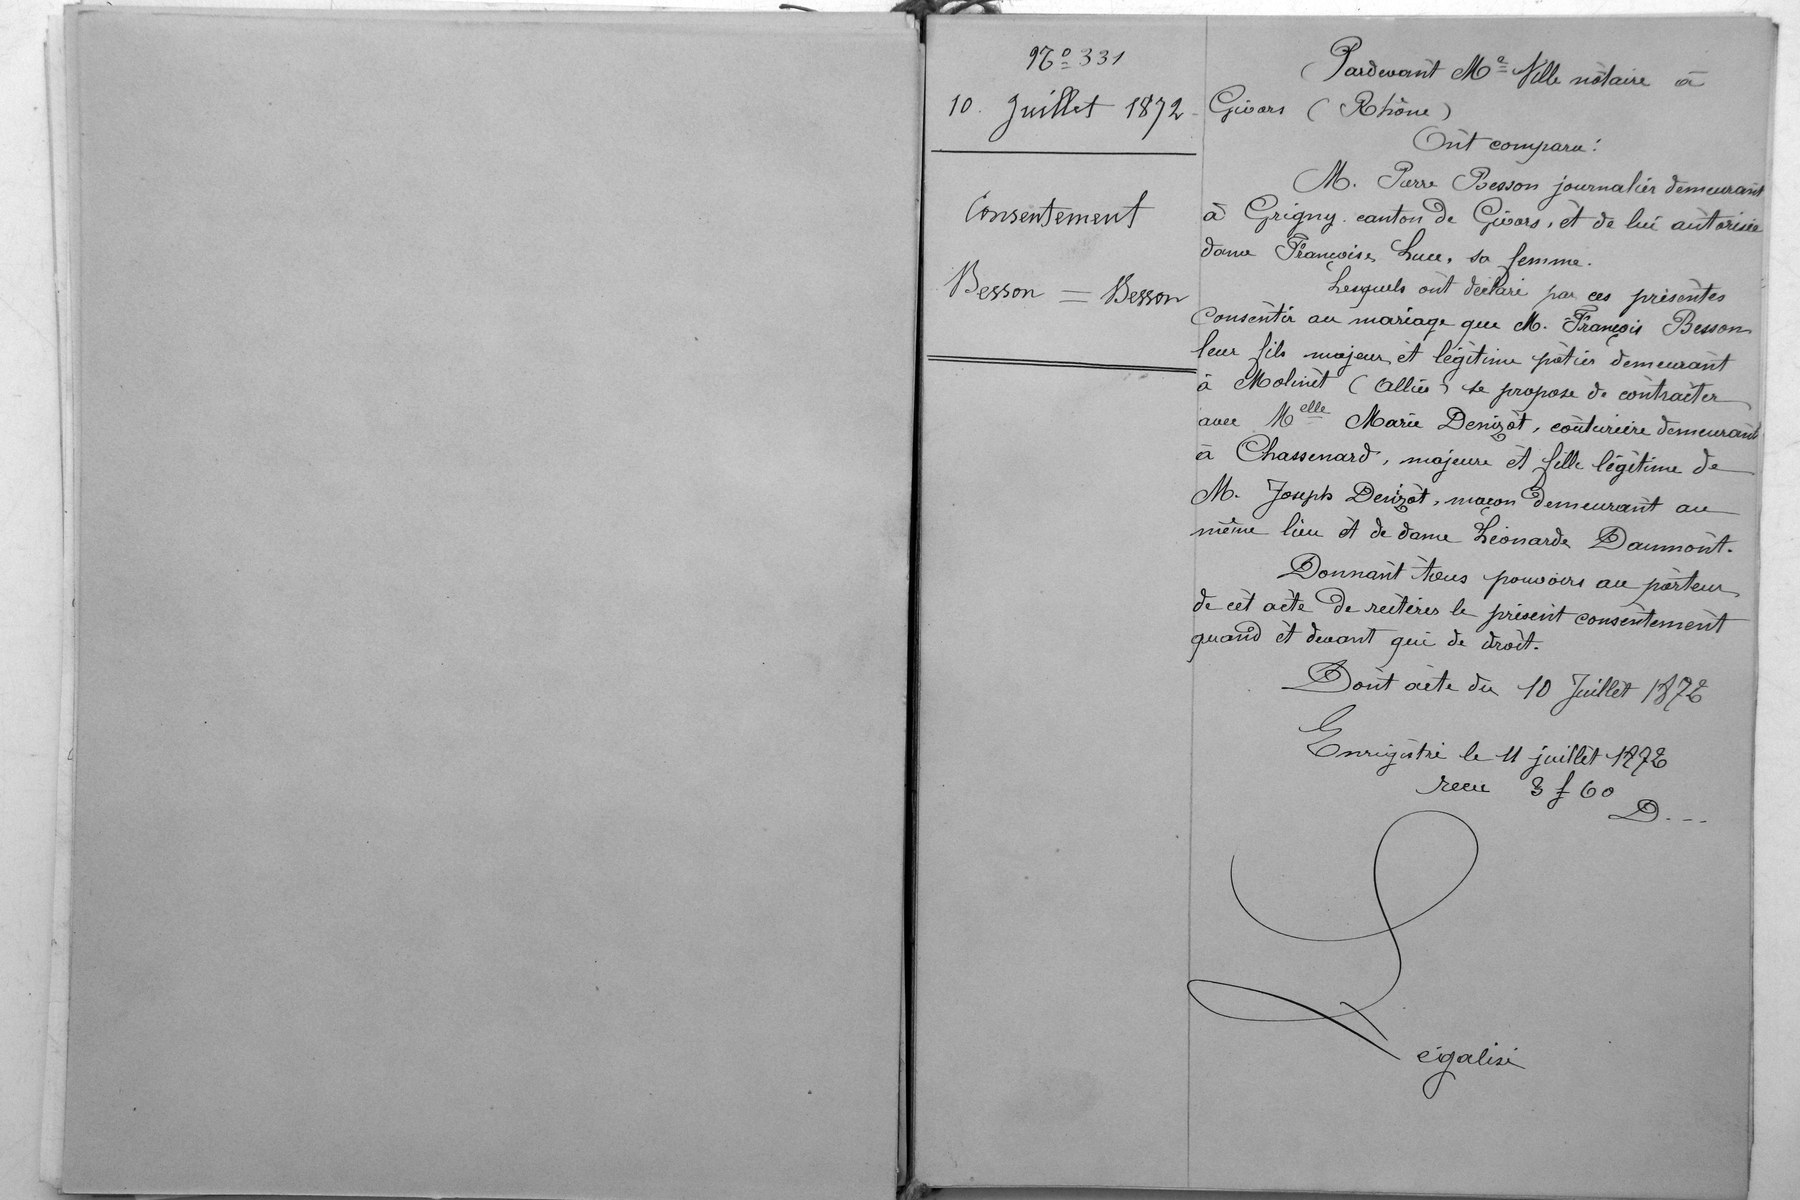 No 331
10. Juillet 1872
Consentement
Besson = Besson
Pardevant Me Ville notaire à
Givors (Rhône)
Ont comparu:
M. Pierre Besson journalier demeurant
à Grigny canton de Givors, et de lui autorisée
dame Françoise Luce, sa femme.
Lesquels ont déclaré par ces présentes
consentir au mariage que M. François Besson
leur fils majeur et légitime potier demeurant
à Molinet (Allier) se propose de contracter
avec Melle Marie Denizot, couturière demeurant
à Chassenard, majeure et fille légitime de
M. Joseph Denizot, maçon demeurant au
même lieu et de dame Léonarde Daumont.
Donnant tous pouvoirs au porteur
de cet acte de réitérer le présent consentement
quand et devant qui de droit.
Dont acte du 10 Juillet 1872
Enregistré le 11 juillet 1872
recu 3 f 60
D. --
Légalisé